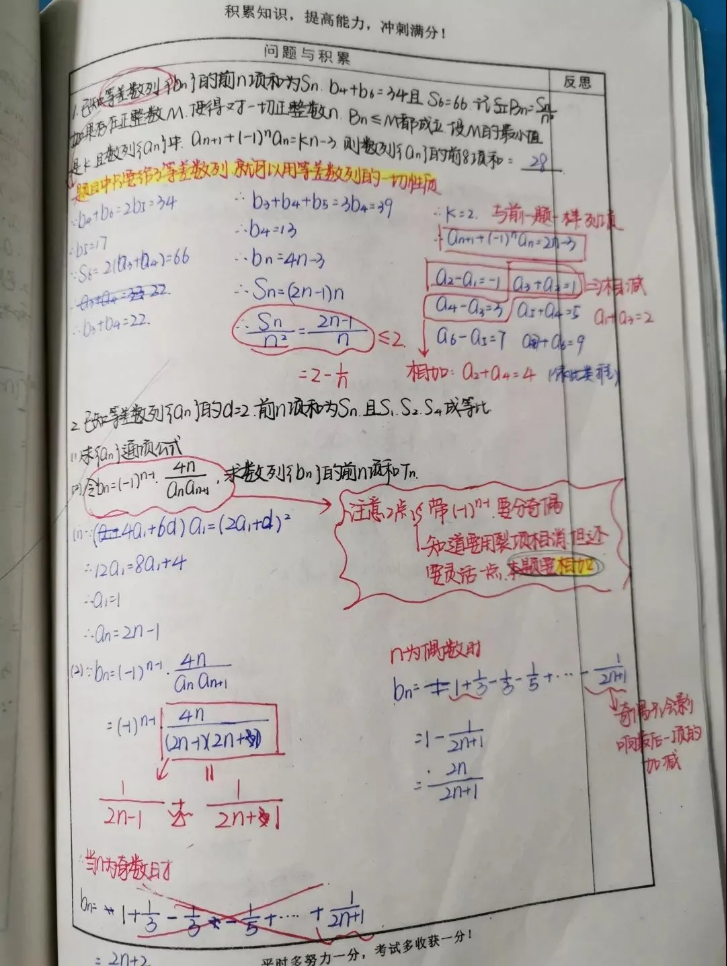 积累知识，提高能力，冲刺满分！
问题与积累
反思
1. 已知等差数列{bn}的前n项和为Sn. b4+b6=34且S6=66. 记Bn=Sn/n²
如果存在正整数M. 使得对一切正整数n. Bn≤M都成立 设M的最小值
是k 且数列{an}中. an+1+(-1)^n an=kn-3. 则数列{an}的前8项和: 28
等差数列 就可以用等差数列的一切性质
∵b4+b6=2b5=34
∴b5=17
∵S6=2(a3+a4)=66
∴b3+b4=22.
∴b3+b4+b5=3b4=39
∴b4=13
∴bn=4n-3
∴Sn=(2n-1)n
∴Sn/n²=(2n-1)/n≤2
=2-1/n
∴k=2. 与前一题一样列项
an+1+(-1)^n an=2n-3
a2-a1=-1 a3+a2=1 ⇒相减
a4-a3=3 a5+a4=5 a1+a3=2
a6-a5=7 a7+a6=9
相加: a2+a4=4
2. 已知等差数列{an}的d=2. 前n项和为Sn. 且S1. S2. S4成等比
(1)求{an}通项公式
(2)令bn=(-1)^(n-1)·4n/(an an+1), 求数列{bn}的前n项和Tn.
注意2点 带(-1)^(n-1) 要分奇偶
知道要用裂项相消 但还
要灵活一点. 本题要相加
(1)∵(4a1+6d)a1=(2a1+d)²
∴12a1=8a1+4
∴a1=1
∴an=2n-1
(2)∵bn=(-1)^(n-1)·4n/(an an+1)
=(-1)^(n-1)·4n/((2n-1)(2n+1))
1/(2n-1) + 1/(2n+1)
n为偶数时
bn=1+1/3-1/3-1/5+⋯-1/(2n+1)
=1-1/(2n+1)
=2n/(2n+1)
奇偶不同会影
响最后一项的
加减
当n为奇数时
bn=1+1/3-1/3-1/5+⋯+1/(2n+1)
=2n+2
平时多努力一分，考试多收获一分！